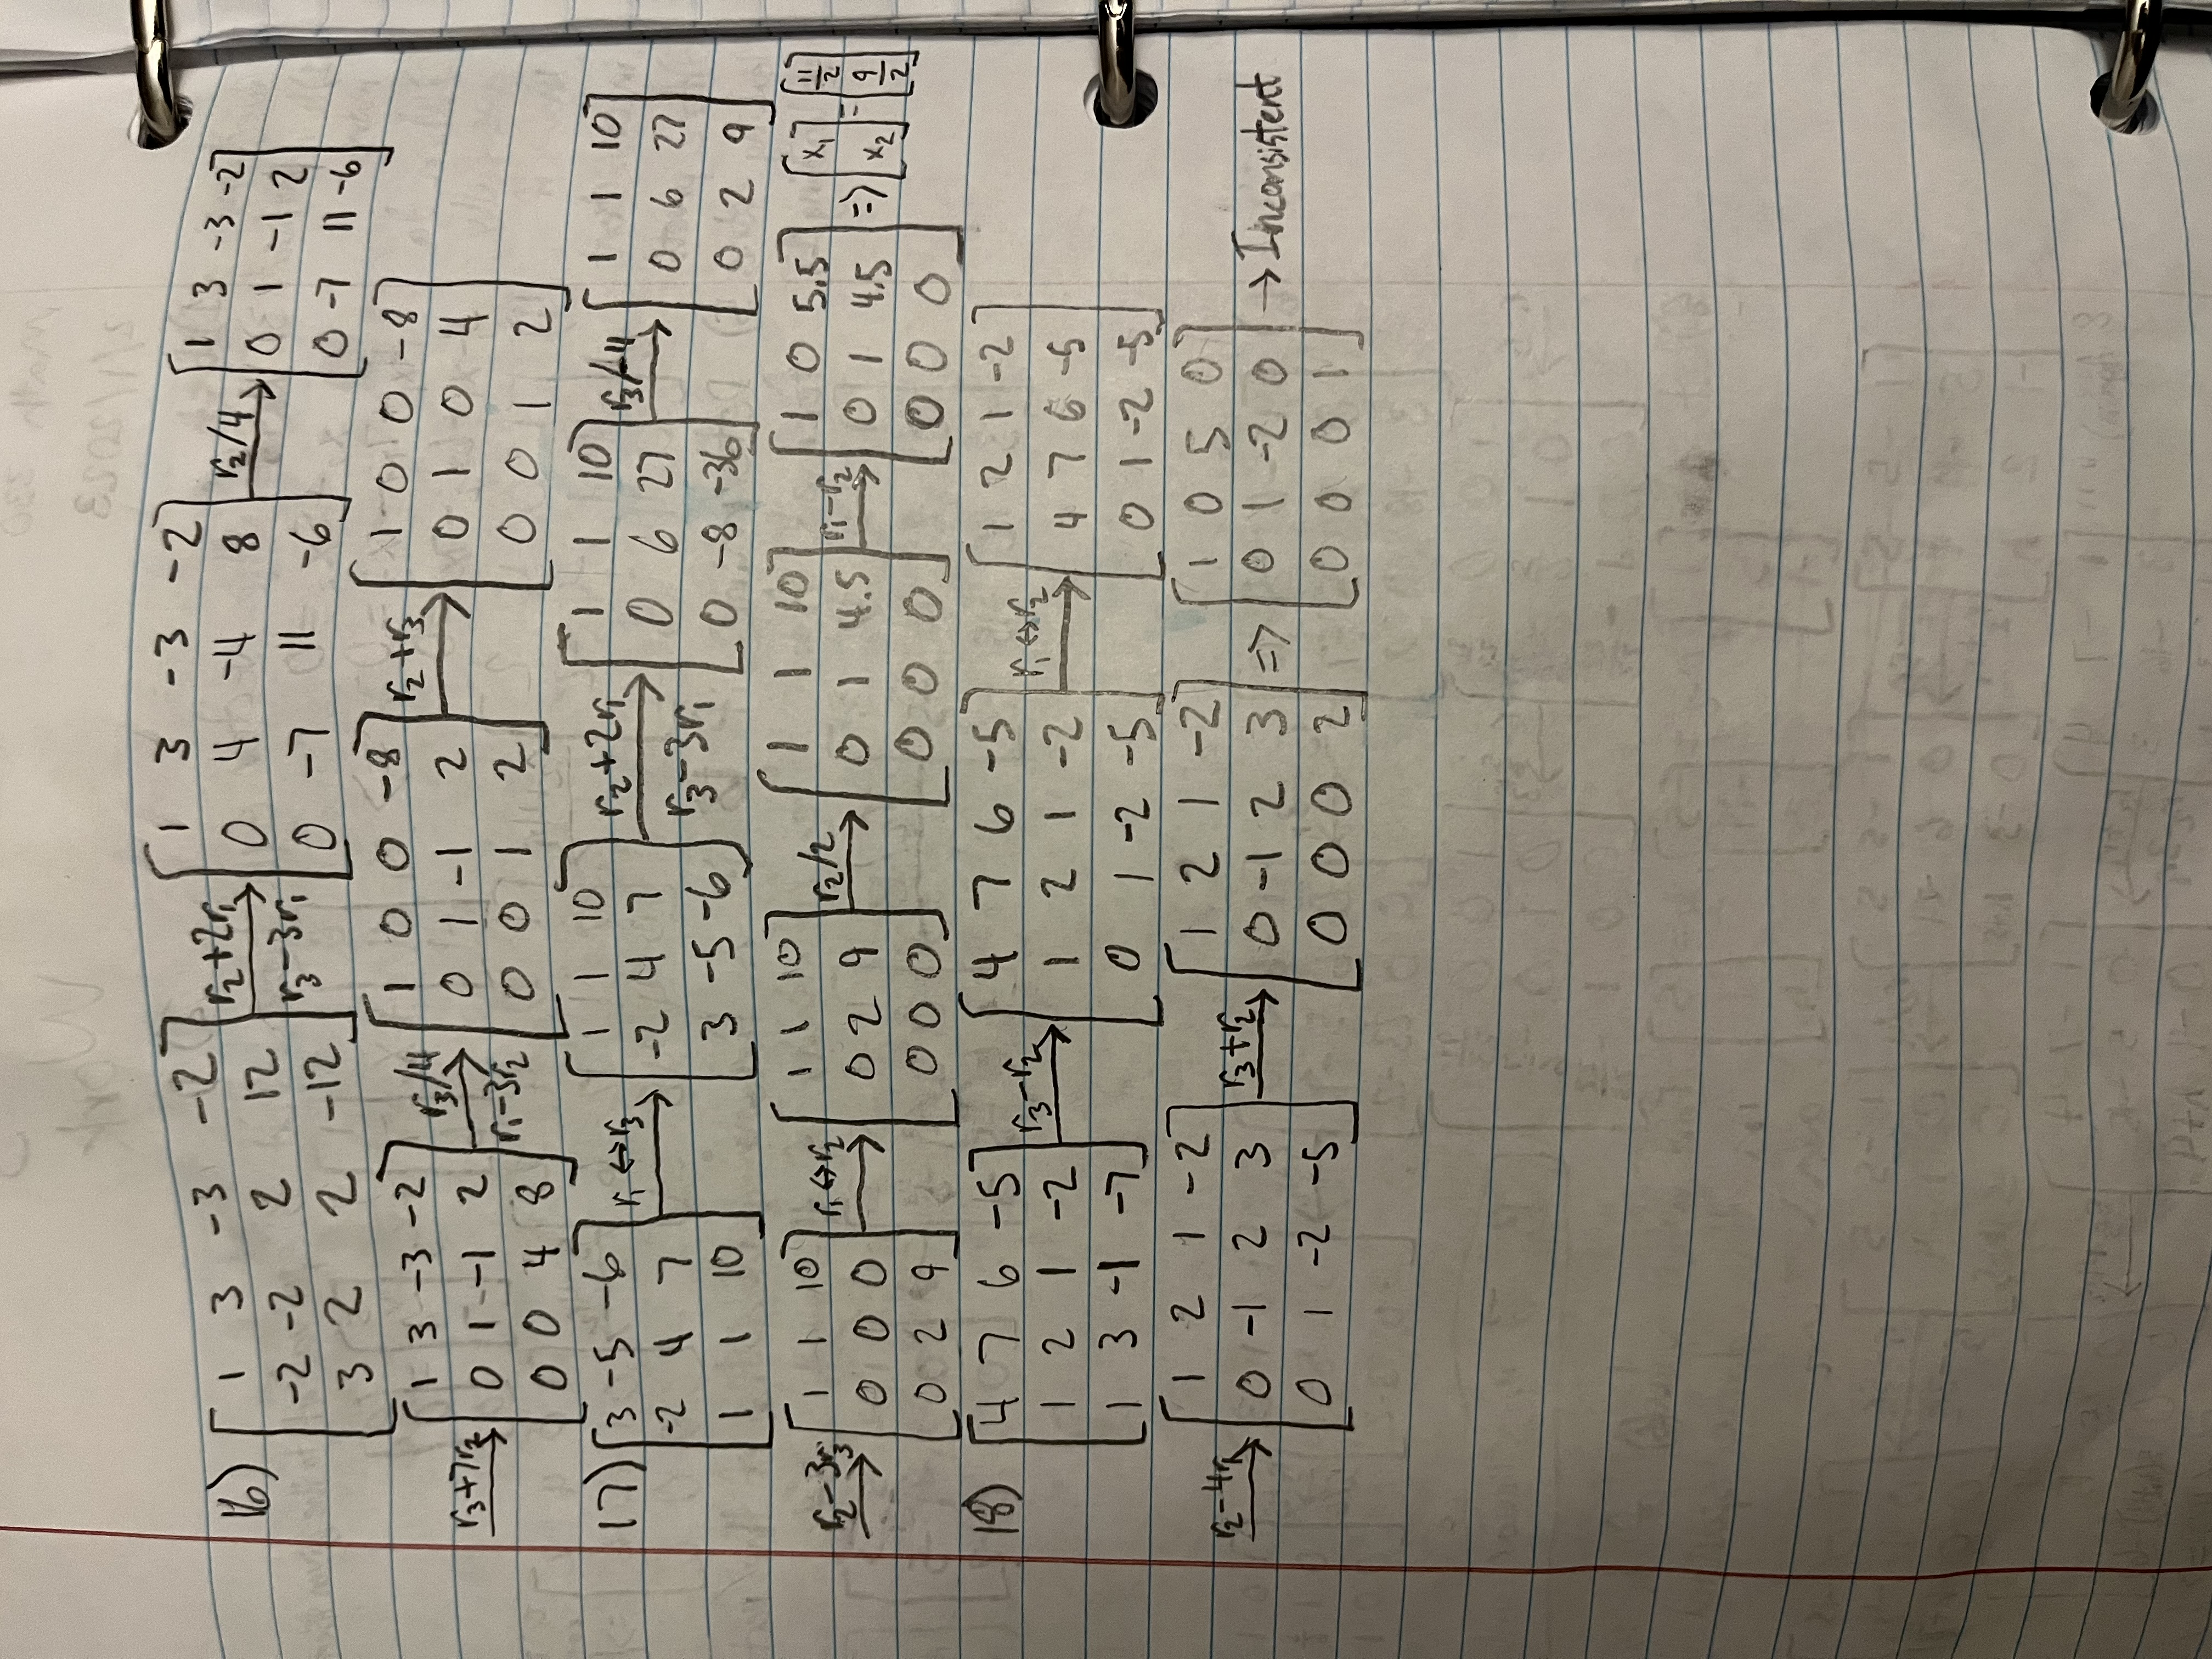 16) [1 3 -3 -2; -2 -2 2 12; 3 2 2 -12] r₂+2r₁ r₃-3r₁ → [1 3 -3 -2; 0 4 -4 8; 0 -7 11 -6] r₂/4 → [1 3 -3 -2; 0 1 -1 2; 0 -7 11 -6]
r₃+7r₂ → [1 3 -3 -2; 0 1 -1 2; 0 0 4 8] r₃/4 r₁-3r₂ → [1 0 0 -8; 0 1 -1 2; 0 0 1 2] r₂+r₃ → [1 0 0 -8; 0 1 0 4; 0 0 1 2]
17) [3 -5 -6; -2 4 7; 1 1 10] r₁↔r₃ → [1 1 10; -2 4 7; 3 -5 -6] r₂+2r₁ r₃-3r₁ → [1 1 10; 0 6 27; 0 -8 -36] r₃/-4 → [1 1 10; 0 6 27; 0 2 9]
r₂-3r₃ → [1 1 10; 0 0 0; 0 2 9] r₁↔r₂ → [1 1 10; 0 2 9; 0 0 0] r₂/2 → [1 1 10; 0 1 4.5; 0 0 0] r₁-r₂ → [1 0 5.5; 0 1 4.5; 0 0 0] => [x₁; x₂] = [11/2; 9/2]
18) [4 7 6 -5; 1 2 1 -2; 1 3 -1 -7] r₃-r₂ → [4 7 6 -5; 1 2 1 -2; 0 1 -2 -5] r₁↔r₂ → [1 2 1 -2; 4 7 6 -5; 0 1 -2 -5]
r₂-4r₁ → [1 2 1 -2; 0 -1 2 3; 0 1 -2 -5] r₃+r₂ → [1 2 1 -2; 0 -1 2 3; 0 0 0 2] => [1 0 5 0; 0 1 -2 0; 0 0 0 1] → Inconsistent